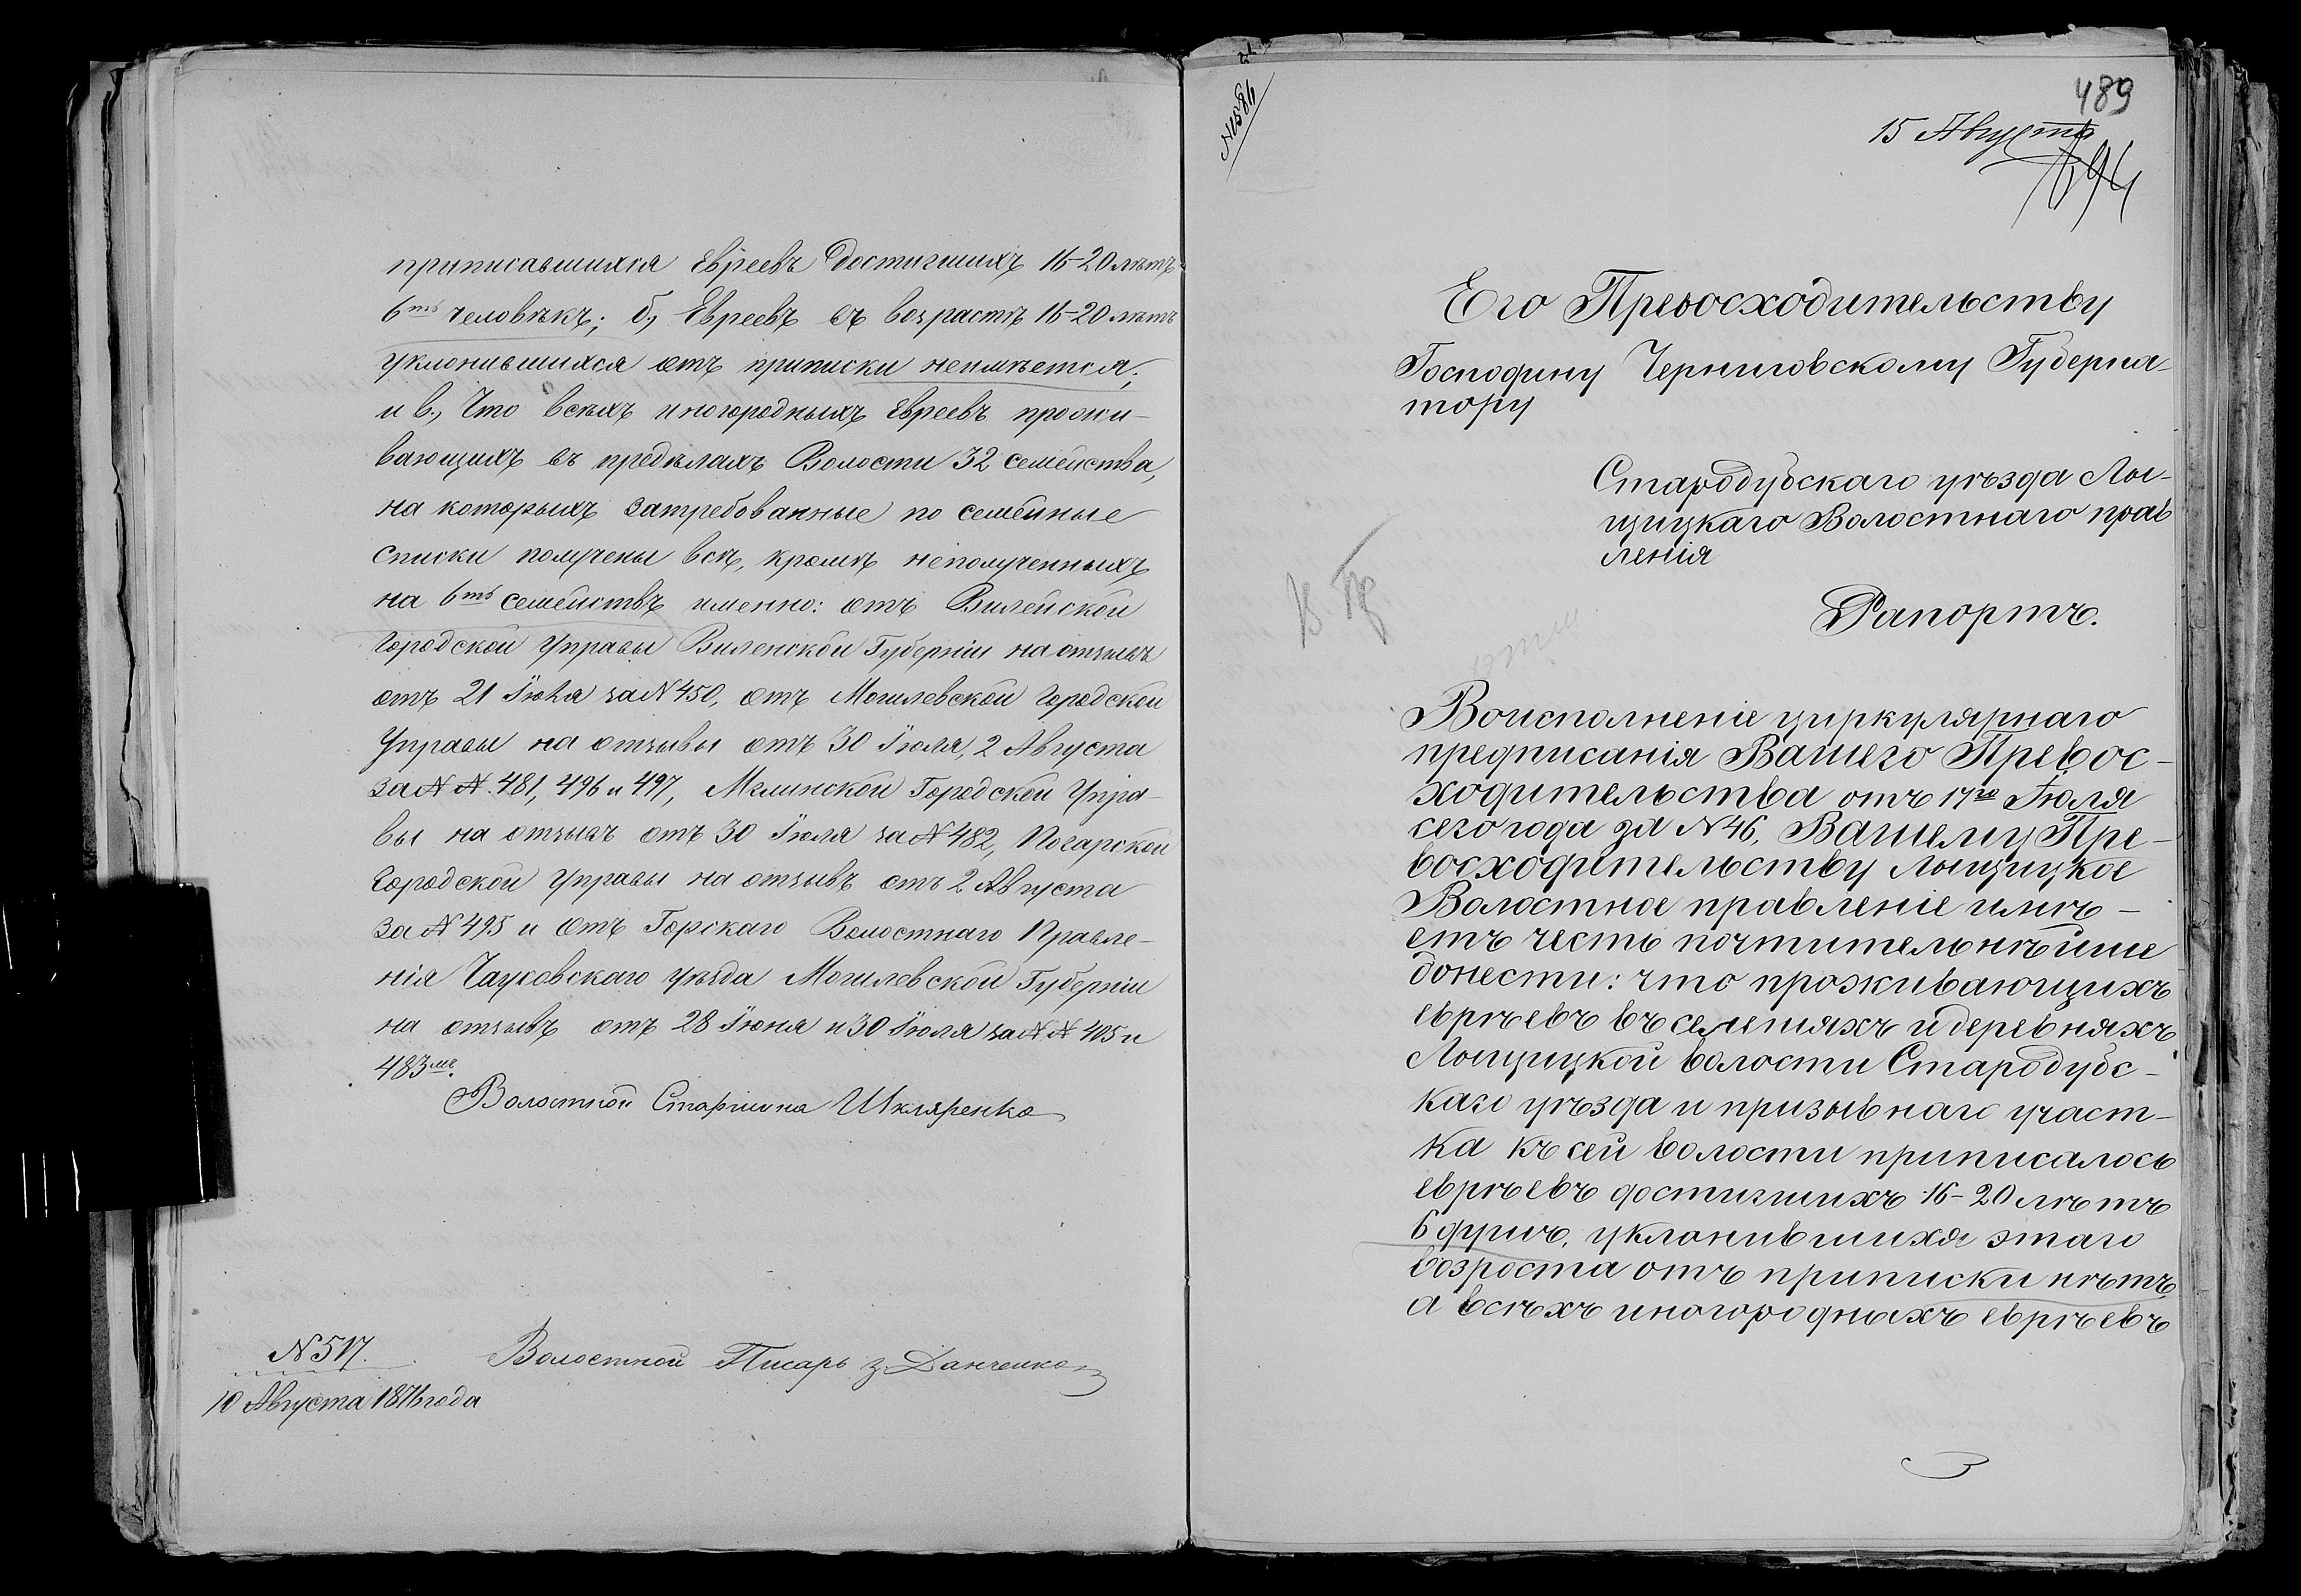 приписавшихся Евреевъ достигшихъ 16-20 лѣтъ
6ть человѣкъ; б., Евреевъ въ возрастѣ 16-20 лѣтъ
уклонившихся отъ приписки неимѣется;
и в., Что всѣхъ иногородныхъ Евреевъ прожи-
вающихъ въ предѣлахъ Волости 32 семейства,
на которыхъ затребованные по семейные
списки получены всѣ, кромѣ неполученныхъ
на 6ть семействъ именно: отъ Вилейской
Городской Управы Виленской Губерніи на отзывъ
отъ 21 Іюля за N 450, отъ Могилевской Городской
Управы на отзывы отъ 30 Іюля, 2 Августа
за N N 481, 496 и 497, Мглинской Городской Упра-
вы на отзывъ отъ 30 Іюля за N 482, Погарской
Городской Управы на отзывъ отъ 2 Августа
за N 495 и отъ Горскаго Волостнаго Правле-
нія Чаусовскаго уѣзда Могилевской Губерніи
на отзывъ отъ 28 Іюня и 30 Іюля за N N 405 и
483мъ.
Волостной Старшина Шкляренко
N 517.
Волостной Писарь Данченко
10 Августа 1876 года
489
15 Августа
Его Превосходительству
Господину Черниговскому Губерна-
тору
Стародубскаго уѣзда Лы-
щицкаго Волостнаго прав
ленія
Рапортъ.
Воисполненіе циркулярнаго
предписанія Вашего Превос-
ходительства отъ 17го Іюля
сего года за N 46, Вашему Пре-
восходительству Лыщицкое
Волостное правленіе имѣ-
етъ честь почтительнѣйше
донести: что проживающихъ
еврѣевъ въ селеніяхъ и деревняхъ
Лыщицкой волости Стародубс-
каго уѣзда и призывнаго участ-
ка къ сей волости приписалось
еврѣевъ достигшихъ 16-20 лѣтъ
6 душъ, уклонившихся этаго
возроста отъ приписки нѣтъ,
а всѣхъ иногородныхъ еврѣевъ